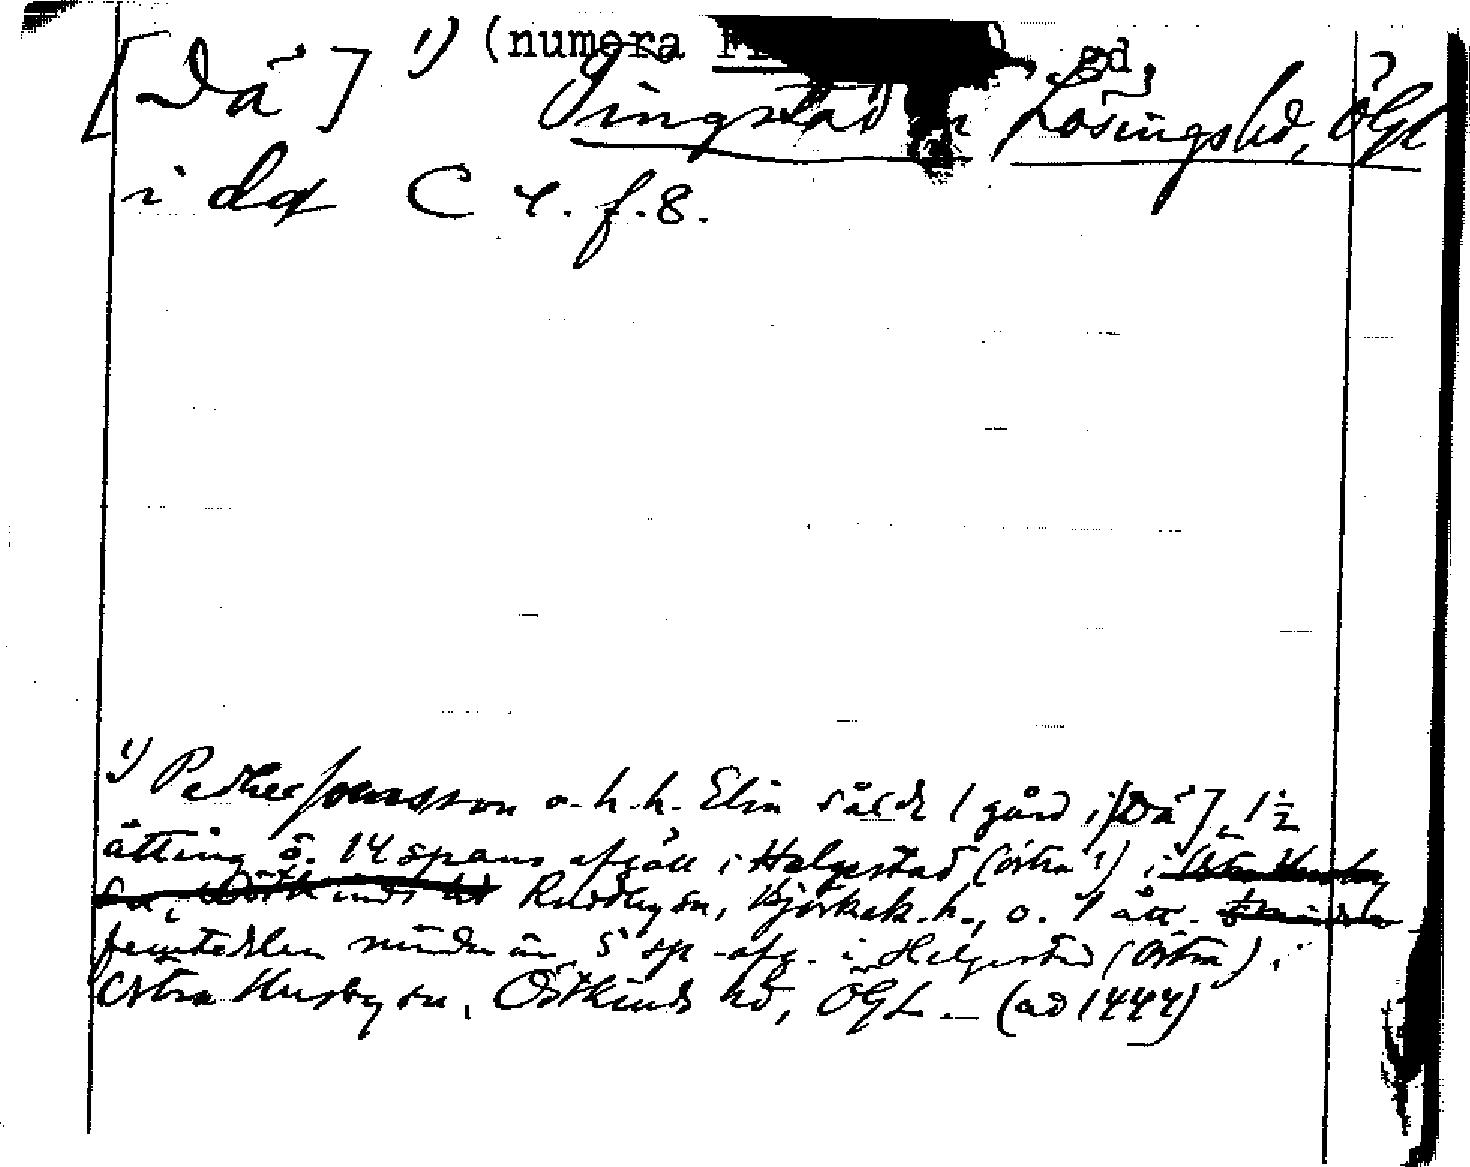 [Dä] 1) (numera
Vingstad i Lösings hd, ÖGL
i dq C 4. f. 8.
1) Pedher Jonsson o. h. h. Elin sålde 1 gård i [Dä], 1 1/2
åtting ö. 14 spans afgäll i Helgestad (östra?) i Östra Husby
sn, Östkinds hd Rudbysn, Björkek. h., o. 1 ått.
femtedelen mindre än 5 sp. afg. i Helgestad (östra) i
Östra Husby sn, Östkinds hd, ÖGL. _ (ad 1444)